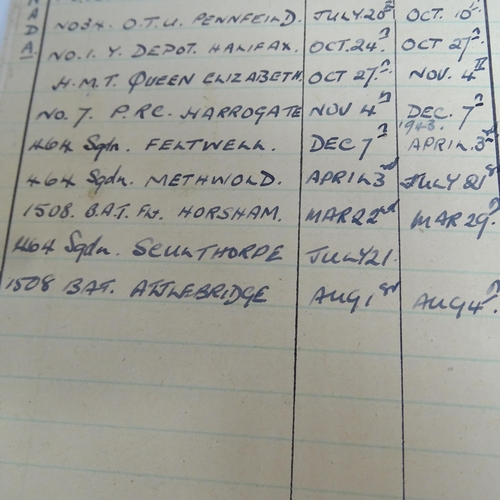 NADA. NO34. O.T.U. PENNFEILD. JULY 28th OCT. 10th
NO. 1. Y. DEPOT. HALIFAX. OCT. 24th. OCT 27th.
H.M.T. QUEEN ELIZABETH. OCT 27th. NOV. 4th
NO. 7. P.R.C. HARROGATE NOV 4th DEC. 7th
1943.
464 Sqdn. FELTWELL. DEC 7th APRIL. 3rd
464 Sqdn. METHWOLD. APRIL 3rd JULY 21st
1508. B.A.T. Flt. HORSHAM. MAR 22nd MAR 29th.
464 Sqdn. SCULTHORPE JULY 21.
1508 BAT. ATTLEBRIDGE AUG 1st AUG 4th.